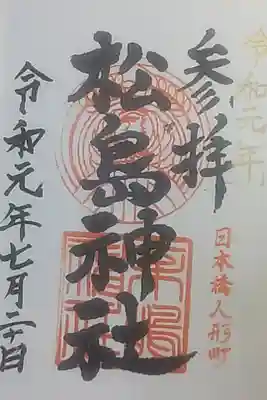 令和元年
参拝
日本橋人形町
松島神社
令和元年七月二十日